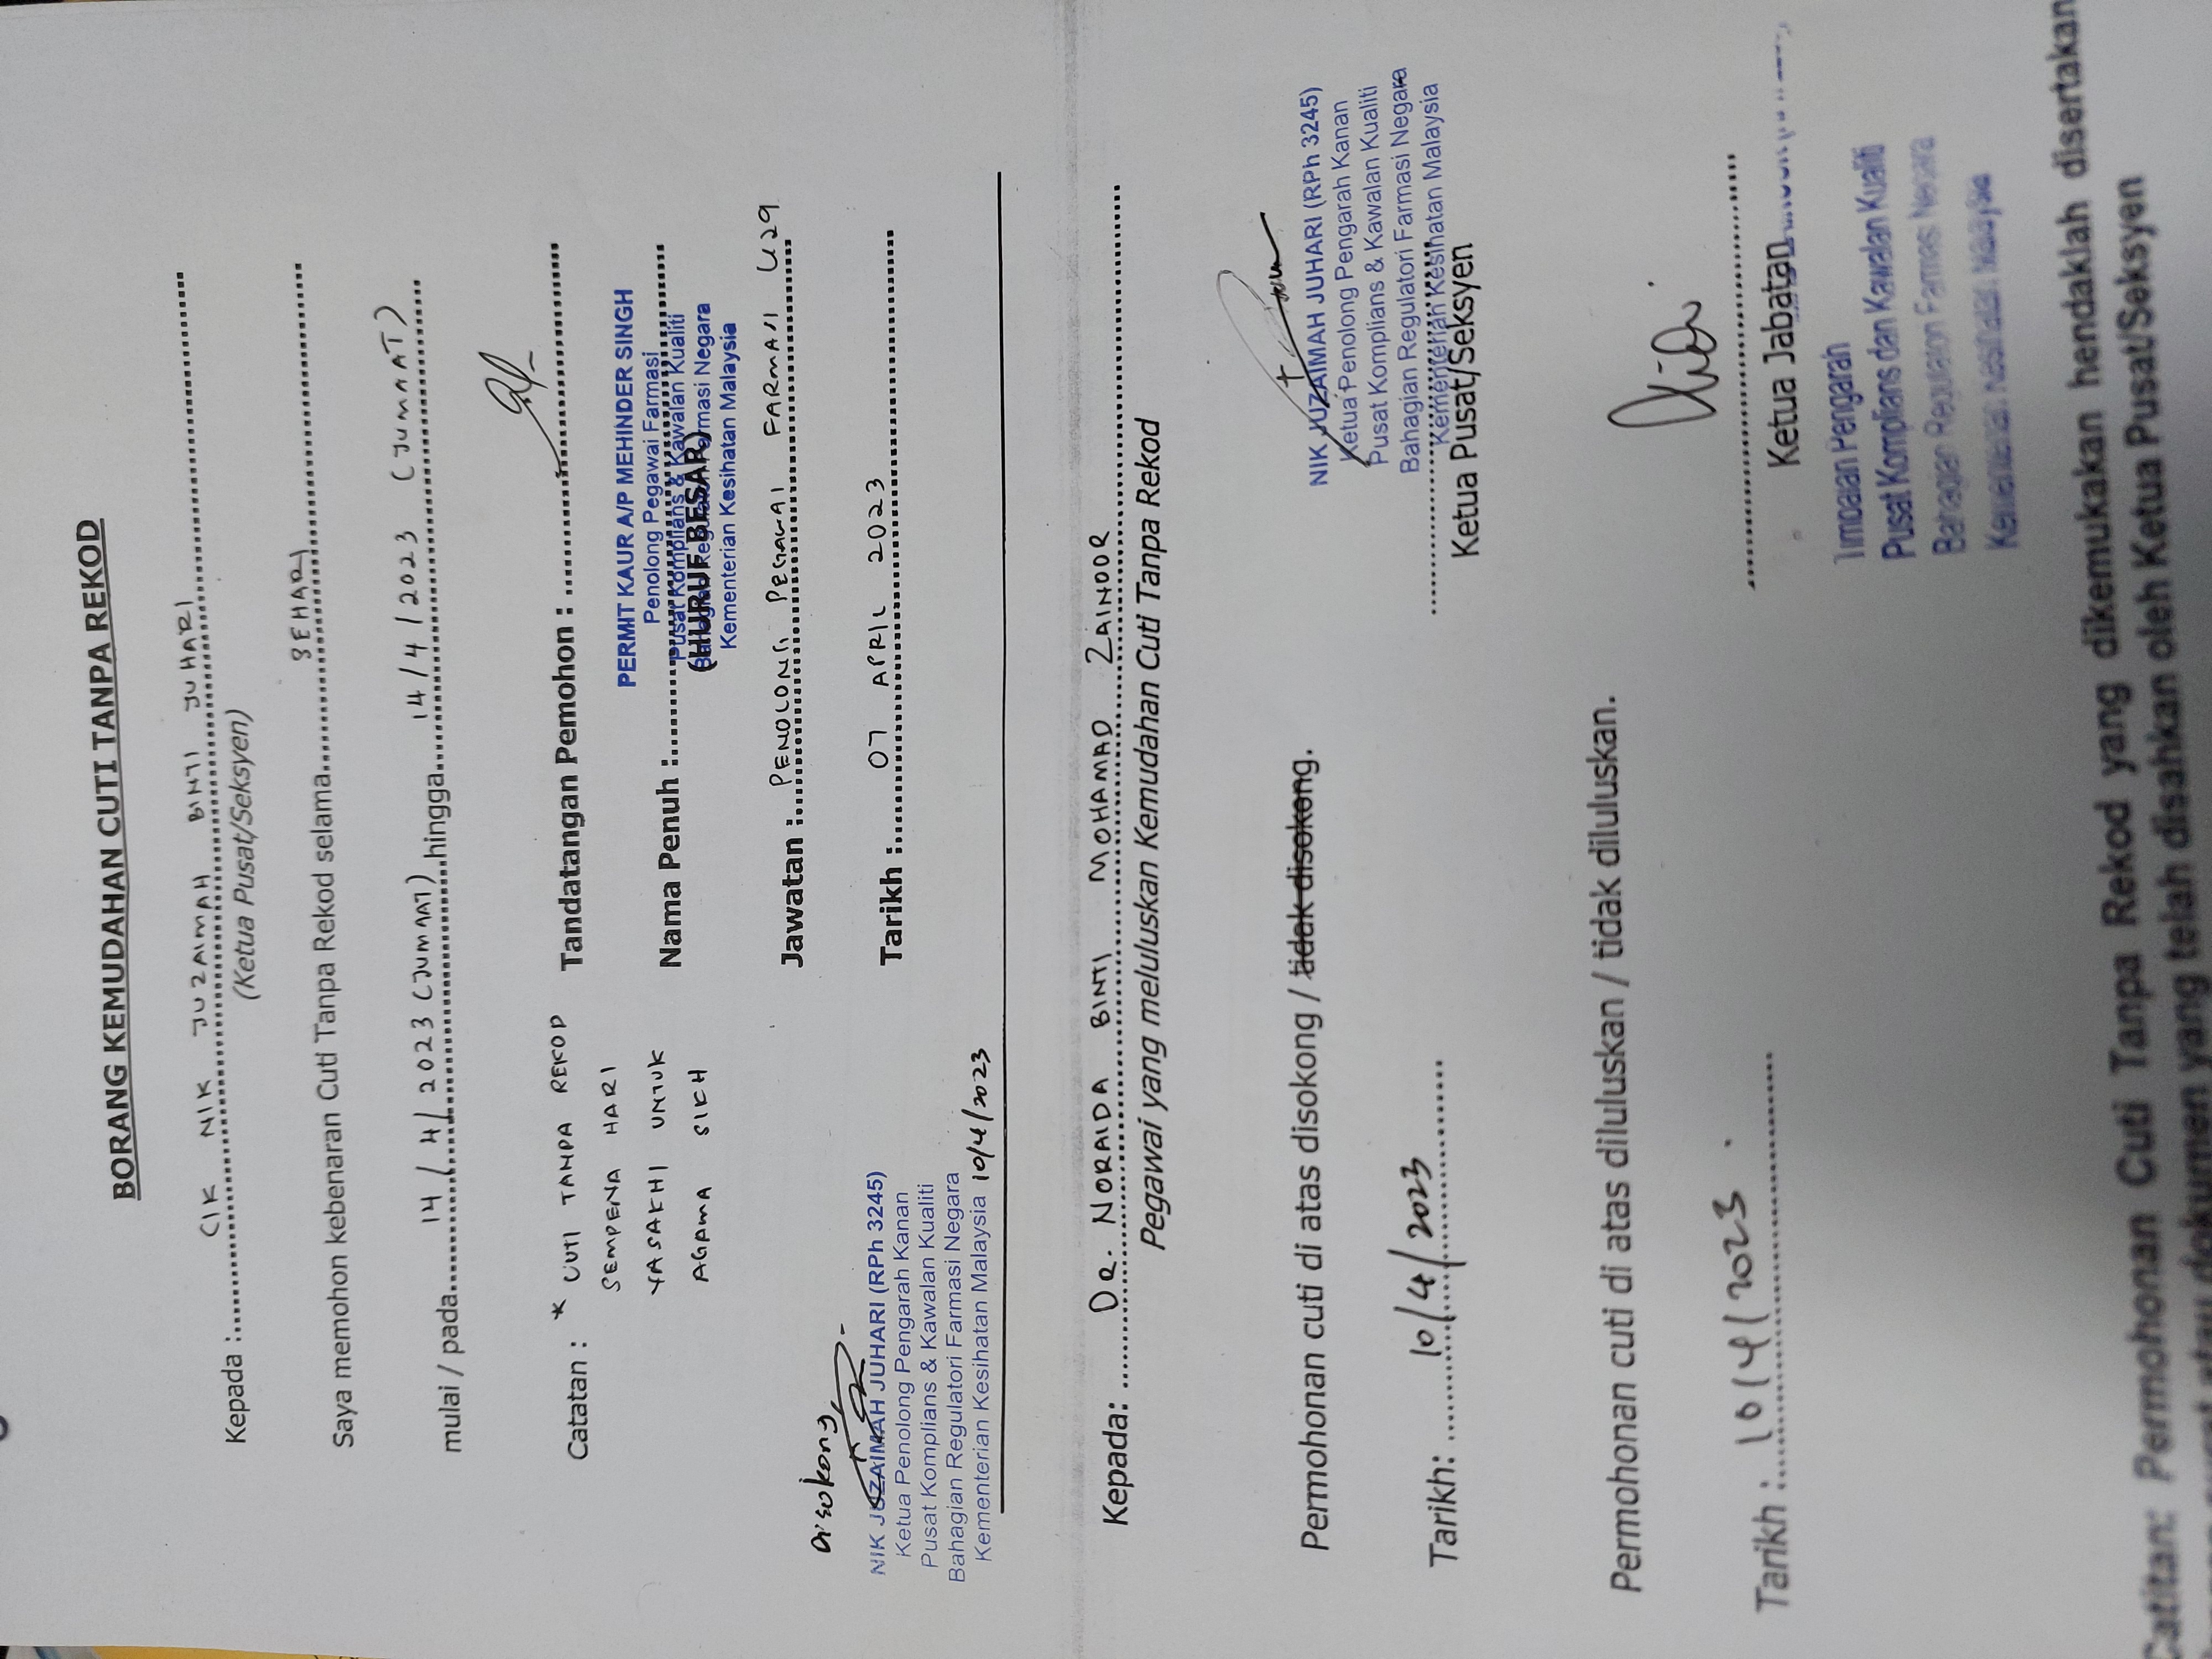 BORANG KEMUDAHAN CUTI TANPA REKOD
Kepada : CIK NIK JUZAIMAH BINTI JUHARI
(Ketua Pusat/Seksyen)
Saya memohon kebenaran Cuti Tanpa Rekod selama SEHARI
mulai / pada 14/4/2023 (JUMAAT) hingga 14/4/2023 (JUMAAT)
Catatan : * CUTI TANPA REKOD
SEMPENA HARI
VASAKHI UNTUK
AGAMA SIKH
Tandatangan Pemohon :
PERMIT KAUR A/P MEHINDER SINGH
Penolong Pegawai Farmasi
Nama Penuh :
Pusat Komplians & Kawalan Kualiti
(HURUF BESAR)
Bahagian Regulatori Farmasi Negara
Kementerian Kesihatan Malaysia
Jawatan : PENOLONG PEGAWAI FARMASI U29
Tarikh : 07 APRIL 2023
Disokong,
NIK JUZAIMAH JUHARI (RPh 3245)
Ketua Penolong Pengarah Kanan
Pusat Komplians & Kawalan Kualiti
Bahagian Regulatori Farmasi Negara
Kementerian Kesihatan Malaysia 10/4/2023
Kepada: DR. NORAIDA BINTI MOHAMAD ZAINOOR
Pegawai yang meluluskan Kemudahan Cuti Tanpa Rekod
Permohonan cuti di atas disokong / tidak disokong.
NIK JUZAIMAH JUHARI (RPh 3245)
Ketua Penolong Pengarah Kanan
Pusat Komplians & Kawalan Kualiti
Bahagian Regulatori Farmasi Negara
Kementerian Kesihatan Malaysia
Tarikh: 10/4/2023
Ketua Pusat/Seksyen
Permohonan cuti di atas diluluskan / tidak diluluskan.
Tarikh : 10/4/2023
Ketua Jabatan
Timbalan Pengarah
Pusat Komplians dan Kawalan Kualiti
Bahagian Regulatori Farmasi Negara
Kementerian Kesihatan Malaysia
Catitan: Permohonan Cuti Tanpa Rekod yang dikemukakan hendaklah disertakan
surat atau dokumen yang telah disahkan oleh Ketua Pusat/Seksyen